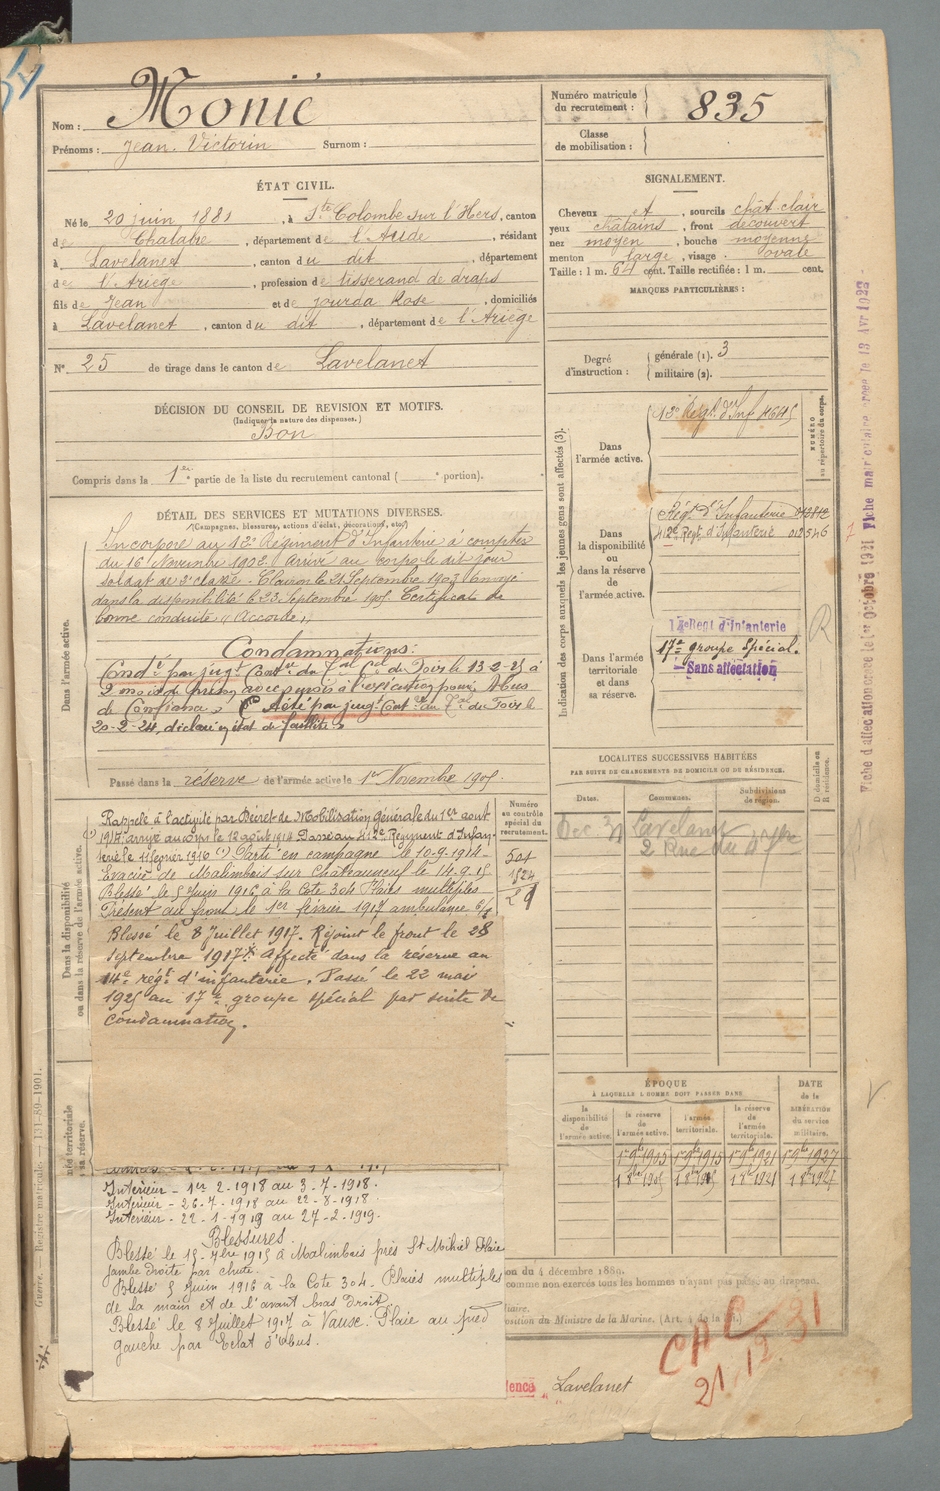 Nom : Monié
Prénoms : Jean Victorin Surnom :
Numéro matricule du recrutement : 835
Classe de mobilisation :
ÉTAT CIVIL.
Né le 20 juin 1881, à Ste Colombe sur l'Hers, canton
de Chalabre, département de l'Aude, résidant
à Lavelanet, canton du dit, département
de l'Ariège, profession de tisserand de draps
fils de Jean et de Jourda Rose, domiciliés
à Lavelanet, canton du dit, département de l'Ariège
N° 25 de tirage dans le canton de Lavelanet
SIGNALEMENT.
Cheveux et, sourcils chât-clair
yeux châtains, front découvert
nez moyen, bouche moyenne
menton large, visage ovale
Taille : 1 m. 64 cent. Taille rectifiée : 1 m. cent.
MARQUES PARTICULIÈRES :
Degré d'instruction : générale (1). 3
militaire (2).
DÉCISION DU CONSEIL DE REVISION ET MOTIFS.
(Indiquer la nature des dispenses.)
Bon
Compris dans la 1re partie de la liste du recrutement cantonal ( e portion).
DÉTAIL DES SERVICES ET MUTATIONS DIVERSES.
(Campagnes, blessures, actions d'éclat, décorations, etc.)
Dans l'armée active.
Incorporé au Régiment d'Infanterie à compter
du 16 Novembre 1902. Arrivé au corps le dit jour
soldat de 2e classe. Clairon le 21 Septembre 1903. Envoyé
dans la disponibilité le 23 Septembre 1905. Certificat de
bonne conduite "Accordé"
Condamnations:
Condé par jugt Contre du Cel de Foix le 13-2-25 à
2 mois de prison avec sursis à l'exécution pour Abus
de Confiance. A été par jugt Cont du de Foix le
20-2-24, déclaré en état de faillite
Passé dans la réserve de l'armée active le 1er Novembre 1905.
Dans la disponibilité ou dans la réserve de l'armée active.
Rappelé à l'activité par Décret de Mobilisation générale du 1er août
1914 arrivé au corps le 12 août 1914 Passé au 412e Régiment d'Infan-
terie le 11 février 1916 (1) Parti en campagne le 10-9-1914-
Evacué de Malimbois sur Châteauneuf le 14-9-15
Blessé le 5 Juin 1916, à la Cote 304 Plaies multiples
Présent au front le 1er février 1917 ambulance
Blessé le 8 Juillet 1917. Rejoint le front le 28
Septembre 1917. Affecté dans la réserve au
14e régt d'infanterie. Passé le 22 mai
1925 au 17e groupe spécial par suite de
condamnation.
Numéro au contrôle spécial du recrutement.
501
1524
29
Intérieur - 1er 2-1918 au 3-7-1918.
Intérieur - 26-7-1918 au 22-8-1918.
Intérieur - 22-1-1919 au 27-2-1919.
Blessures.
Blessé le 15-7bre 1915 à Malimbois près St Mihiel Plaie
jambe droite par chute.
Blessé 5 Juin 1916 à la Cote 304 - Plaies multiples
de la main et de l'avant bras Droit
Blessé le 8 Juillet 1917 à Vaux. Plaie au pied
gauche par Eclat d'obus.
Indication des corps auxquels les jeunes gens sont affectés (3).
NUMÉRO au répertoire du corps.
Dans l'armée active.
Régt d'Inf 4645
Dans la disponibilité ou dans la réserve de l'armée active.
Régt d'Infanterie
412e Régt. d'Infanterie 012546
Dans l'armée territoriale et dans sa réserve.
14e Regt d'Infanterie
17e groupe Spécial.
Sans affectation
R
LOCALITÉS SUCCESSIVES HABITÉES
PAR SUITE DE CHANGEMENTS DE DOMICILE OU DE RÉSIDENCE.
Dates. Communes. Subdivisions de région. D domicile ou R résidence.
Dec Lavelanet
2 Rue du
ÉPOQUE
À LAQUELLE L'HOMME DOIT PASSER DANS
la disponibilité de l'armée active. la réserve de l'armée active. l'armée territoriale. la réserve de l'armée territoriale.
DATE de la LIBÉRATION du service militaire.
1r 9bre 1905 1r 9bre 1915 1r 9bre 1921 1r 9bre 1927
1 8bre 1905 1 8bre 1915 1 8bre 1921 1 8bre 1927
on du 4 décembre 1889.
comme non exercés tous les hommes n'ayant pas passé au drapeau.
position du Ministre de la Marine. (Art. 4 de la
Lavelanet
CAC
21.12.31
Fiche d'affectation créée le 1er Octobre 1921 Fiche matriculaire créée le 13 Avr 1922
Guerre. — Registre matricule. — 131-89-1901.